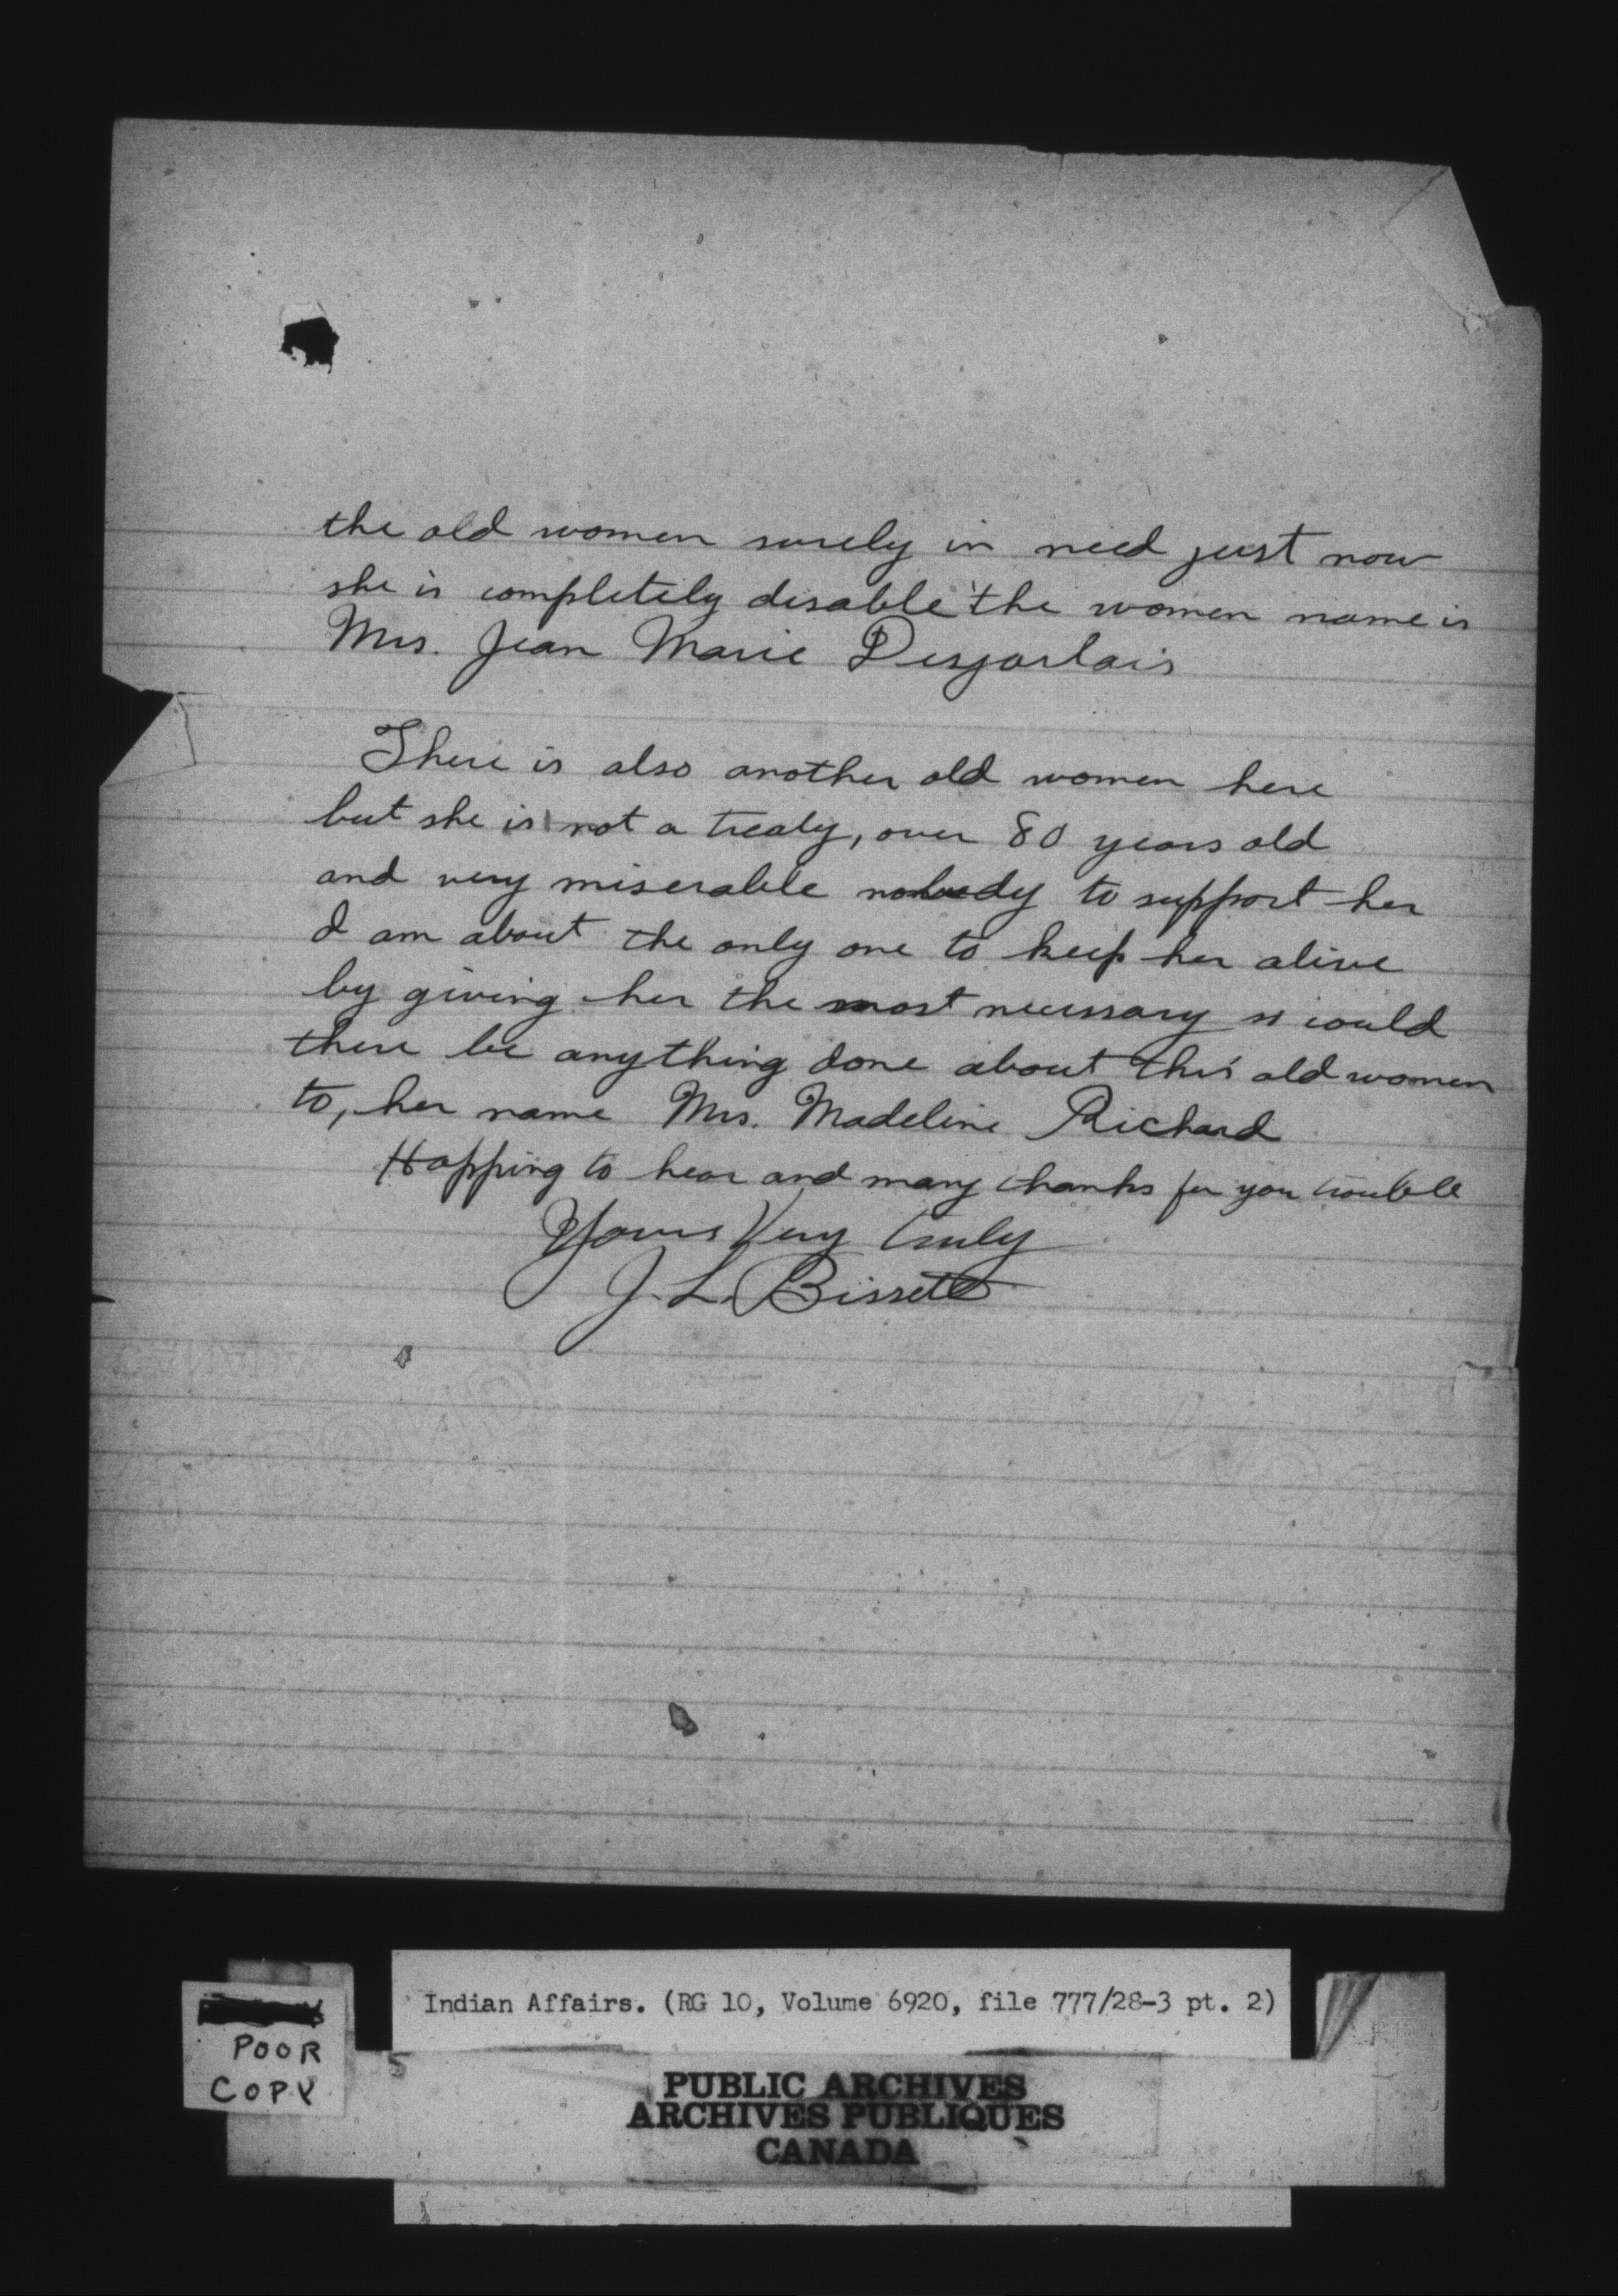 the old women surely in need just now
she is completely disable the women name is
Mrs. Jean Marie Desjarlais
There is also another old women here
but she is not a treaty, over 80 years old
and very miserable nobody to support her
I am about the only one to keep her alive
by giving her the most necessary so could
there be anything done about this old women
to, her name Mrs. Madeline Richard
Hopping to hear and many thanks for you trouble
Yours Very truly
J. L. Bissett
Indian Affairs. (RG 10, Volume 6920, file 777/28-3 pt. 2)
POOR
COPY
PUBLIC ARCHIVES
ARCHIVES PUBLIQUES
CANADA